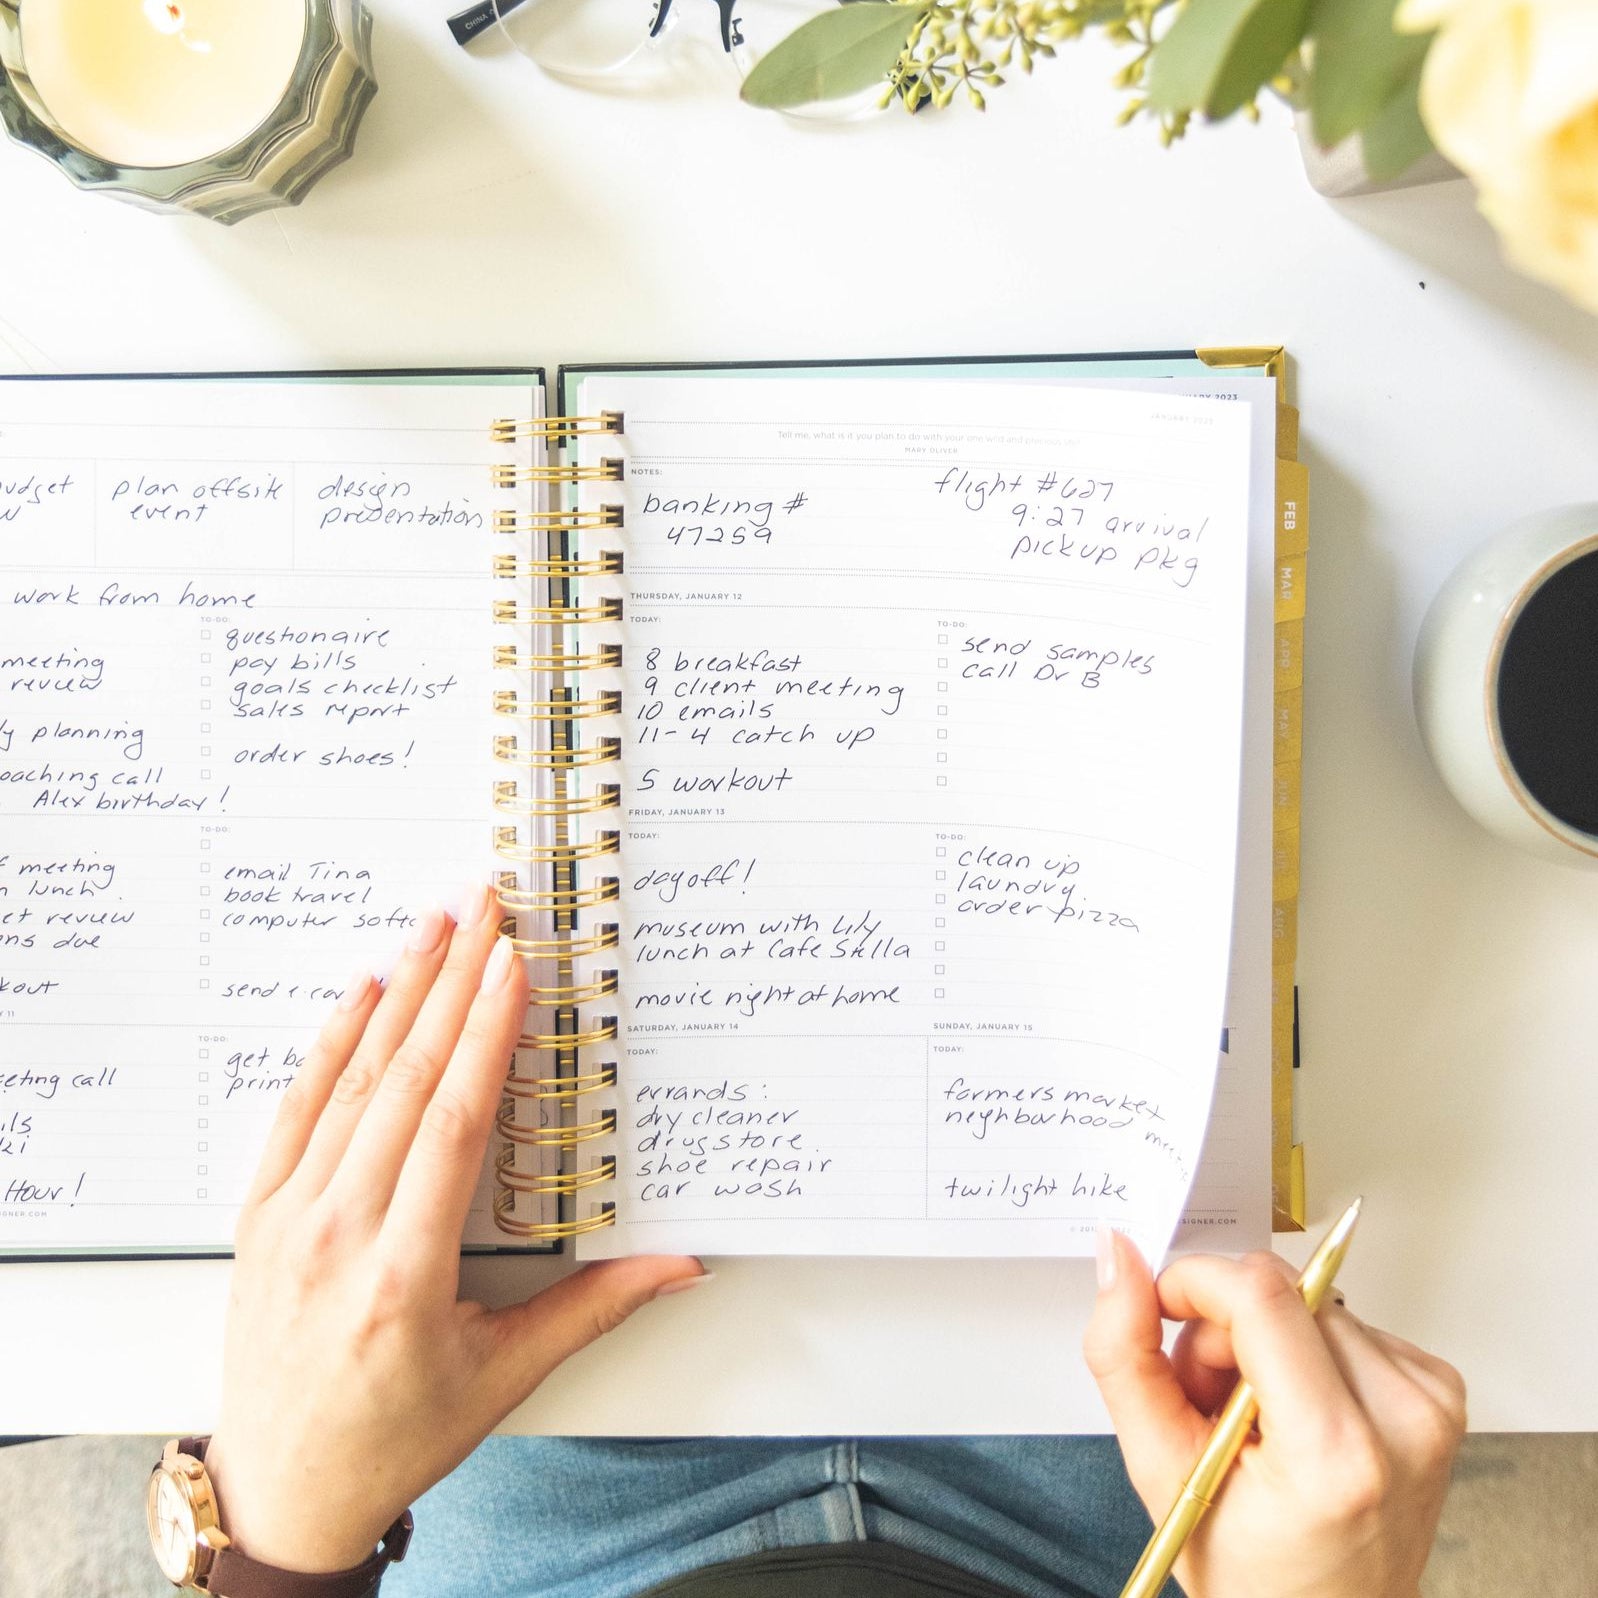 CHINA
plan offsite
event
design
presentation
work from home
TO-DO:
questionaire
meeting
pay bills
review
goals checklist
sales report
planning
order shoes!
call
Alex birthday!
TO-DO:
meeting
email Tina
lunch
book travel
review
computer
due
send
11
TO-DO:
get
call
print
Hour!
JANUARY 2023
Tell me, what is it you plan to do with your one wild and precious life?
MARY OLIVER
NOTES:
banking #
47259
flight #627
9:27 arrival
pickup pkg
THURSDAY, JANUARY 12
TODAY:
8 breakfast
9 client meeting
10 emails
11-4 catch up
5 workout
TO-DO:
send samples
call Dr B
FRIDAY, JANUARY 13
TODAY:
day off!
museum with Lily
lunch at Cafe Stella
movie night at home
TO-DO:
clean up
laundry
order pizza
SATURDAY, JANUARY 14
TODAY:
errands:
dry cleaner
drugstore
shoe repair
car wash
SUNDAY, JANUARY 15
TODAY:
farmers market
neighborhood
twilight hike
2023
FEB
MAR
APR
MAY
JUN
AUG